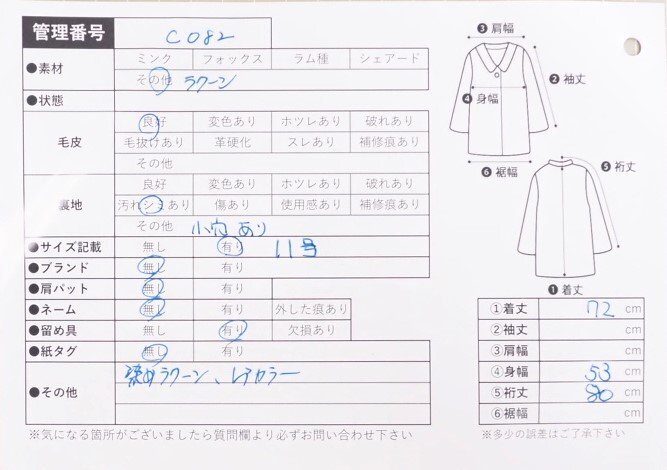 管理番号 C082
●素材 ミンク フォックス ラム種 シェアード
その他 ラクーン
●状態
毛皮 良好 変色あり ホツレあり 破れあり
毛抜けあり 革硬化 スレあり 補修痕あり
その他
裏地 良好 変色あり ホツレあり 破れあり
汚れシミあり 傷あり 使用感あり 補修痕あり
その他 小穴あり
●サイズ記載 無し 有り 11号
●ブランド 無し 有り
●肩パット 無し 有り
●ネーム 無し 有り 外した痕あり
●留め具 無し 有り 欠損あり
●紙タグ 無し 有り
●その他 染めラクーン、レアカラー
※気になる箇所がございましたら質問欄より必ずお問い合わせ下さい
❸肩幅
❷袖丈
❹身幅
❻裾幅
❺裄丈
❶着丈
①着丈 72 cm
②袖丈 cm
③肩幅 cm
④身幅 53 cm
⑤裄丈 80 cm
⑥裾幅 cm
※多少の誤差はご了承下さい